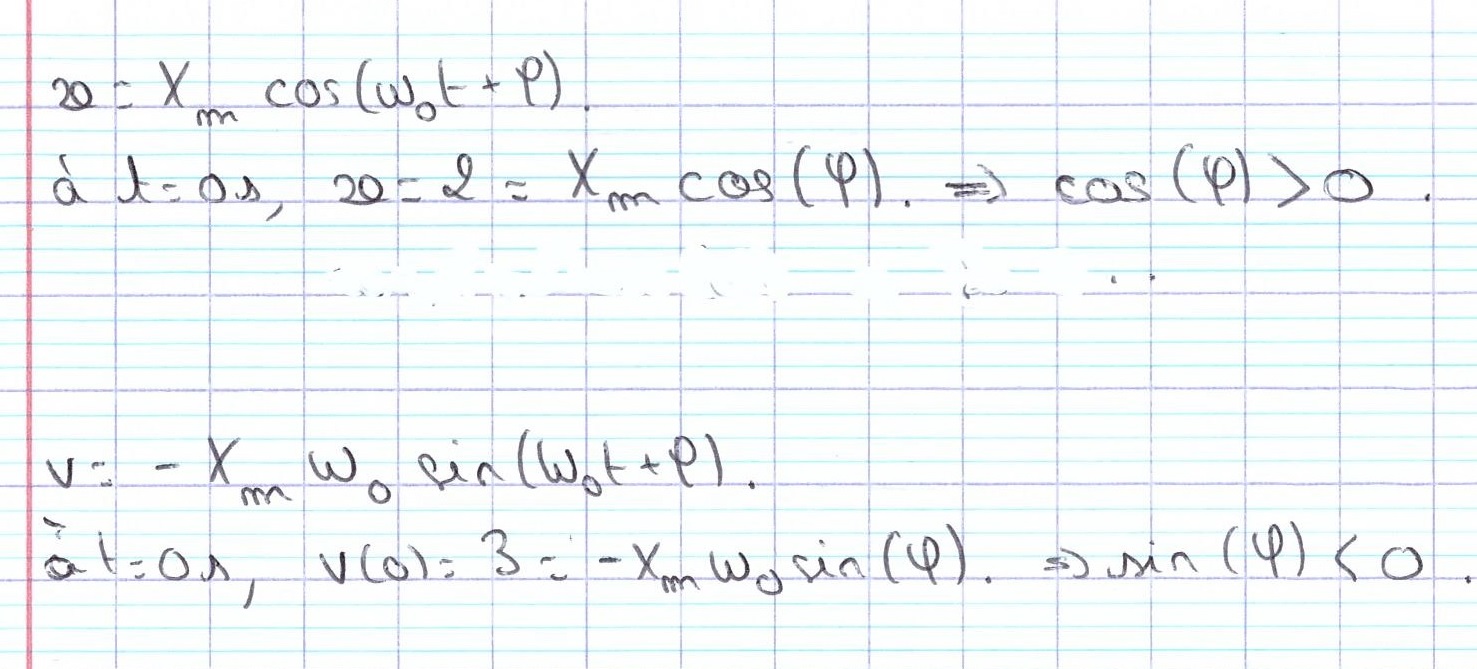 x = Xm cos(ω₀t + φ).
à t = 0s, x = 2 = Xm cos(φ). ⇒ cos(φ) > 0.
v = - Xm ω₀ sin(ω₀t + φ).
à t = 0s, v(0) = 3 = - Xm ω₀ sin(φ). ⇒ sin(φ) < 0.